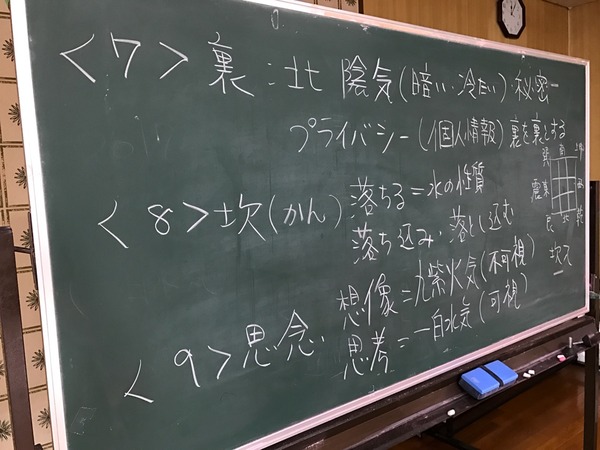 <7>裏：北 陰気(暗い・冷たい)・秘密
プライバシー(個人情報)裏を裏とする
<8>坎(かん) 落ちる=水の性質
落ち込み・落とし込む
<9>思念 想像=九紫火気(不可視)
思考=一白水気(可視)
巽 南 坤
震 東 西
艮 北 乾